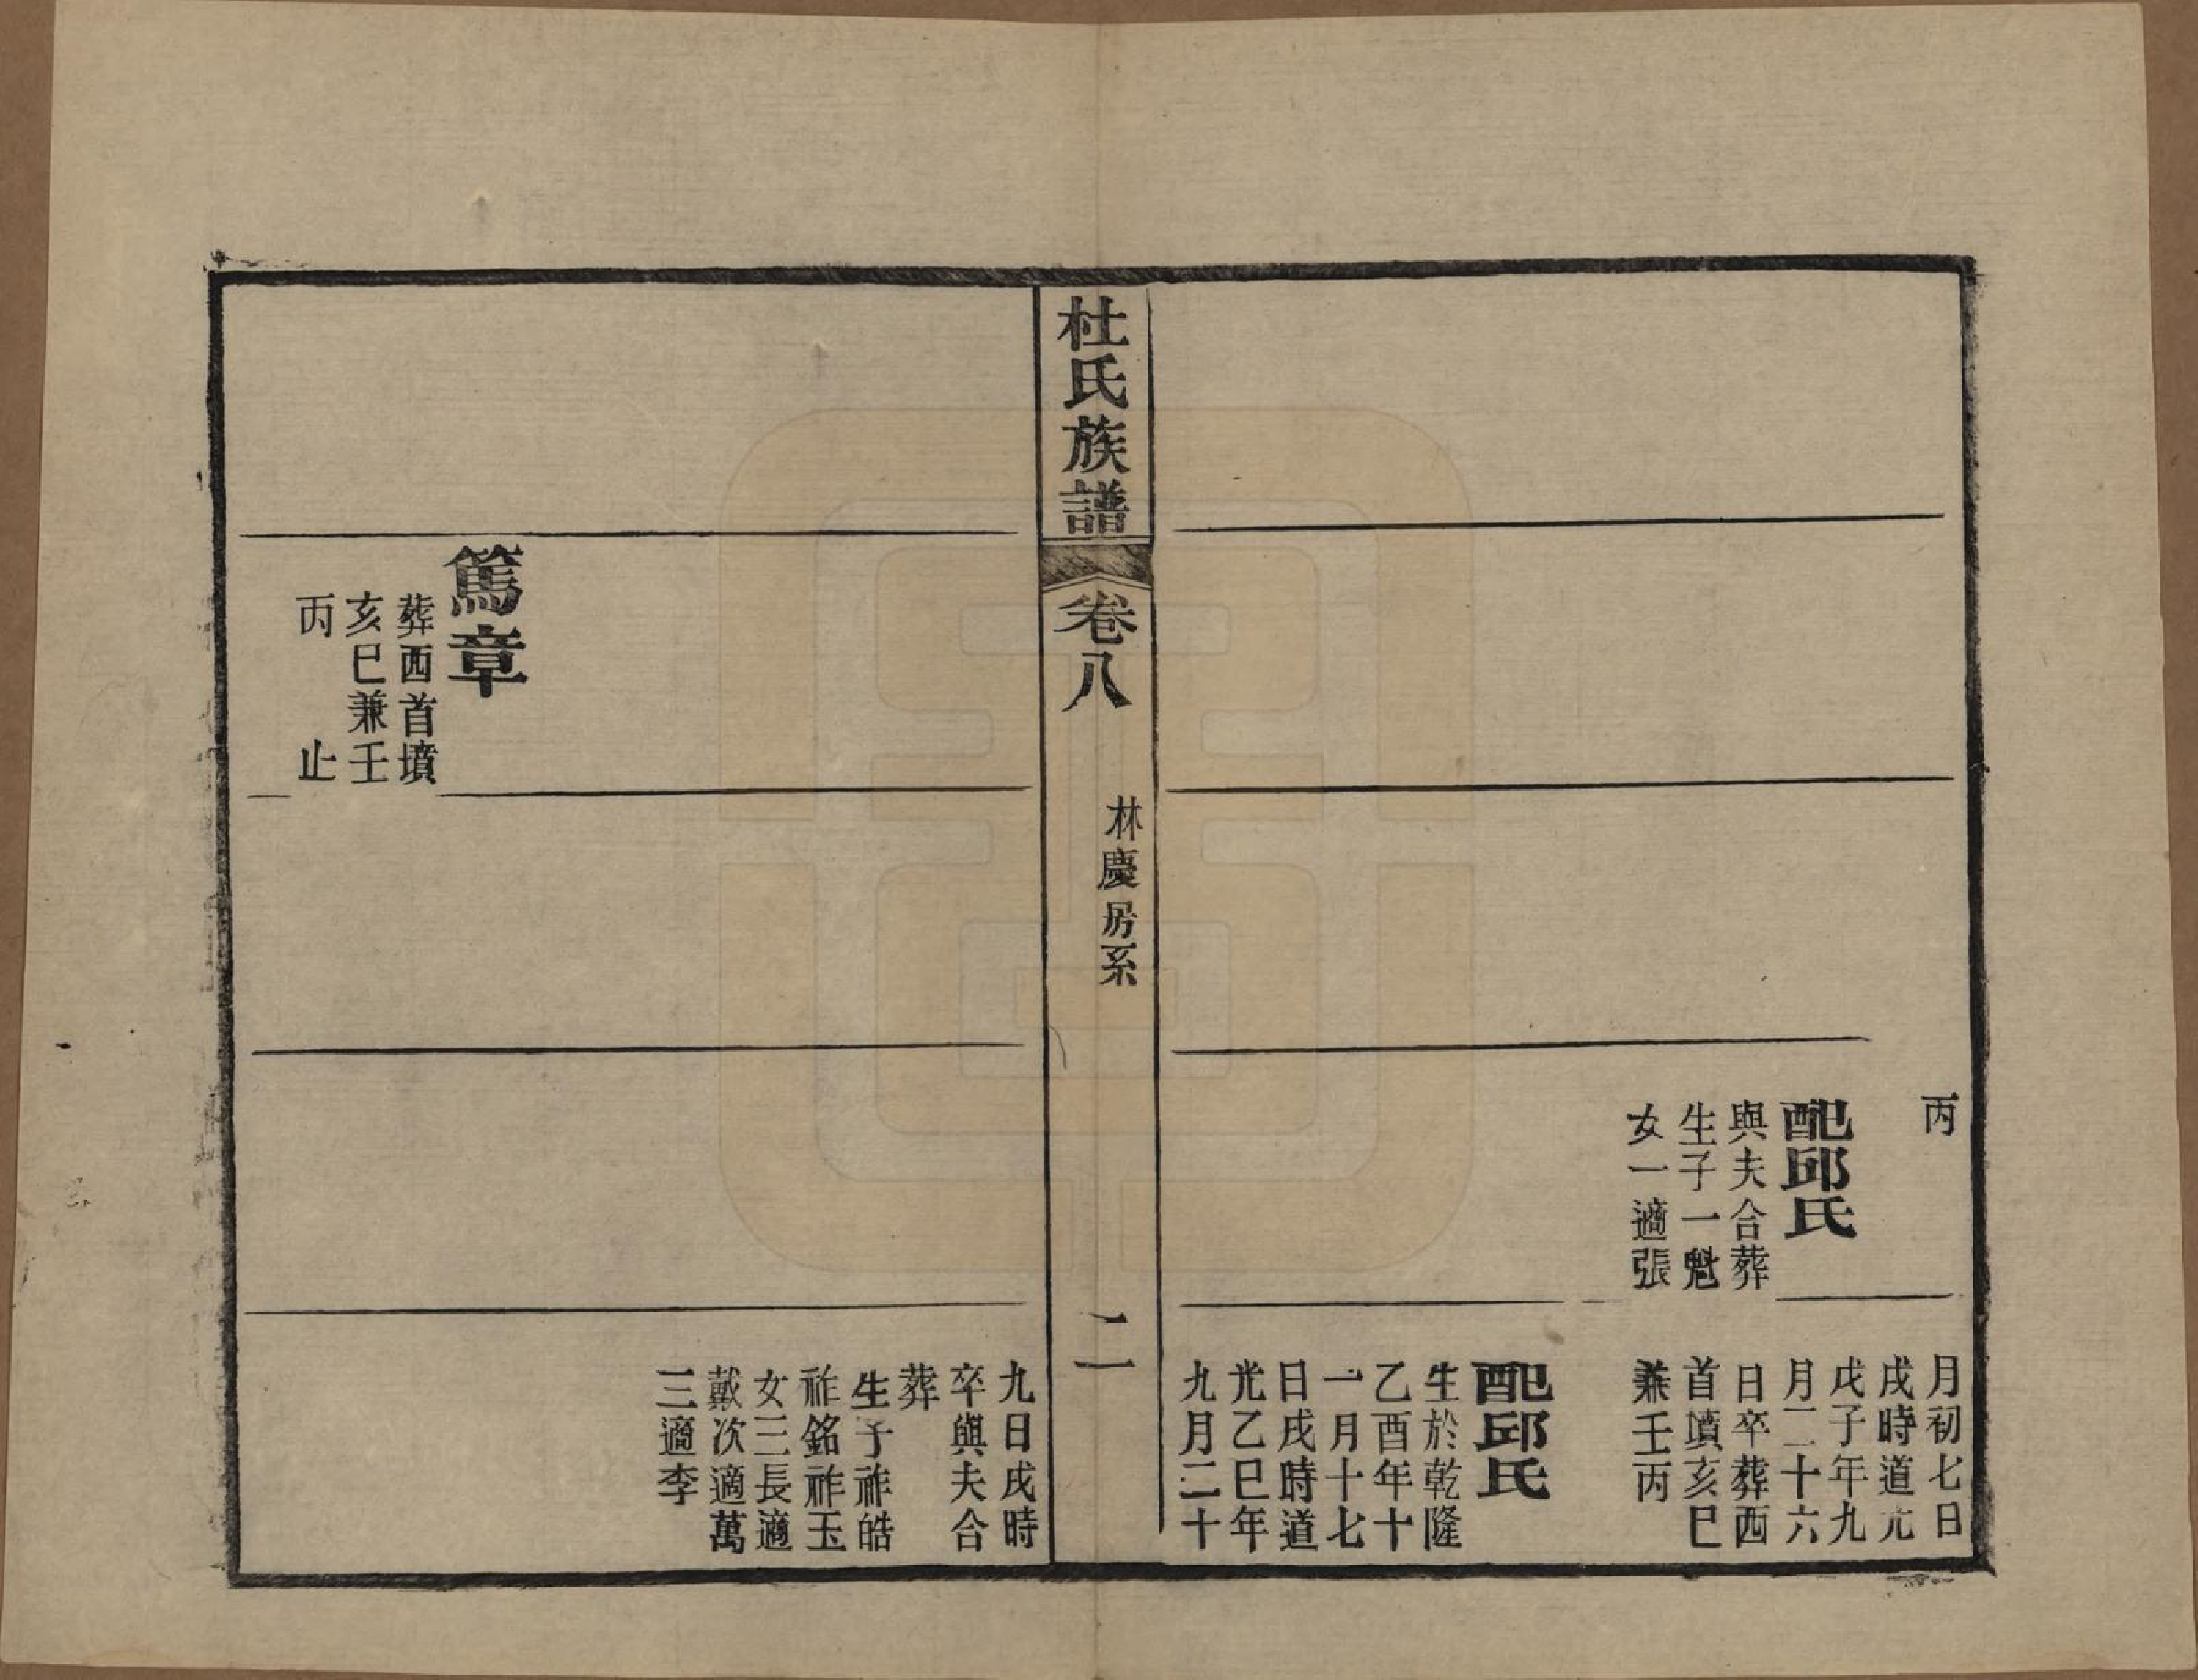 丙
配邱氏
與夫合葬
生子一魁
女一適張
月初七日
戌時道光
戊子年九
月二十六
日卒葬西
首墳亥巳
兼壬丙
配邱氏
生於乾隆
乙酉年十
一月十七
日戌時道
光乙巳年
九月二十
杜氏族譜
卷八
林慶房系
二
篤章
葬西首墳
亥巳兼壬
丙 止
九日戌時
卒與夫合
葬
生子祚皓
祚銘祚玉
女三長適
戴次適萬
三適李